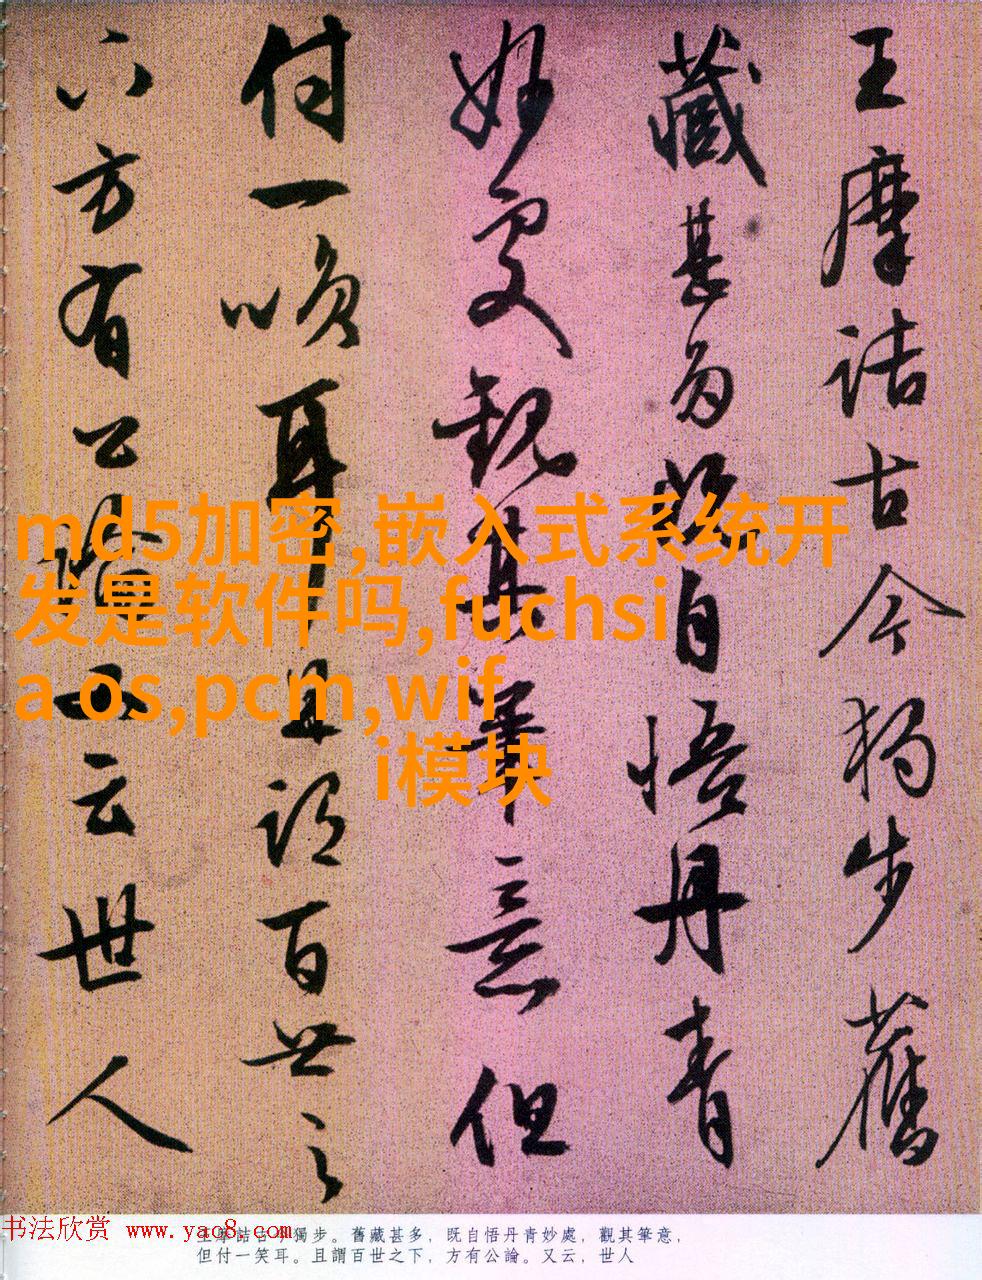 王摩詰古今獨步舊
藏甚多既自悟丹青
妙處觀其筆意但
付一咲耳且謂百世之
下方有公論又云世人
md5加密,嵌入式系统开
发是软件吗,fuchsi
a os,pcm,wif
i模块
书法欣赏 www.yac8.com
王摩詰古今獨步。舊藏甚多，既自悟丹青妙處，觀其筆意，
但付一笑耳。且謂百世之下，方有公論。又云，世人